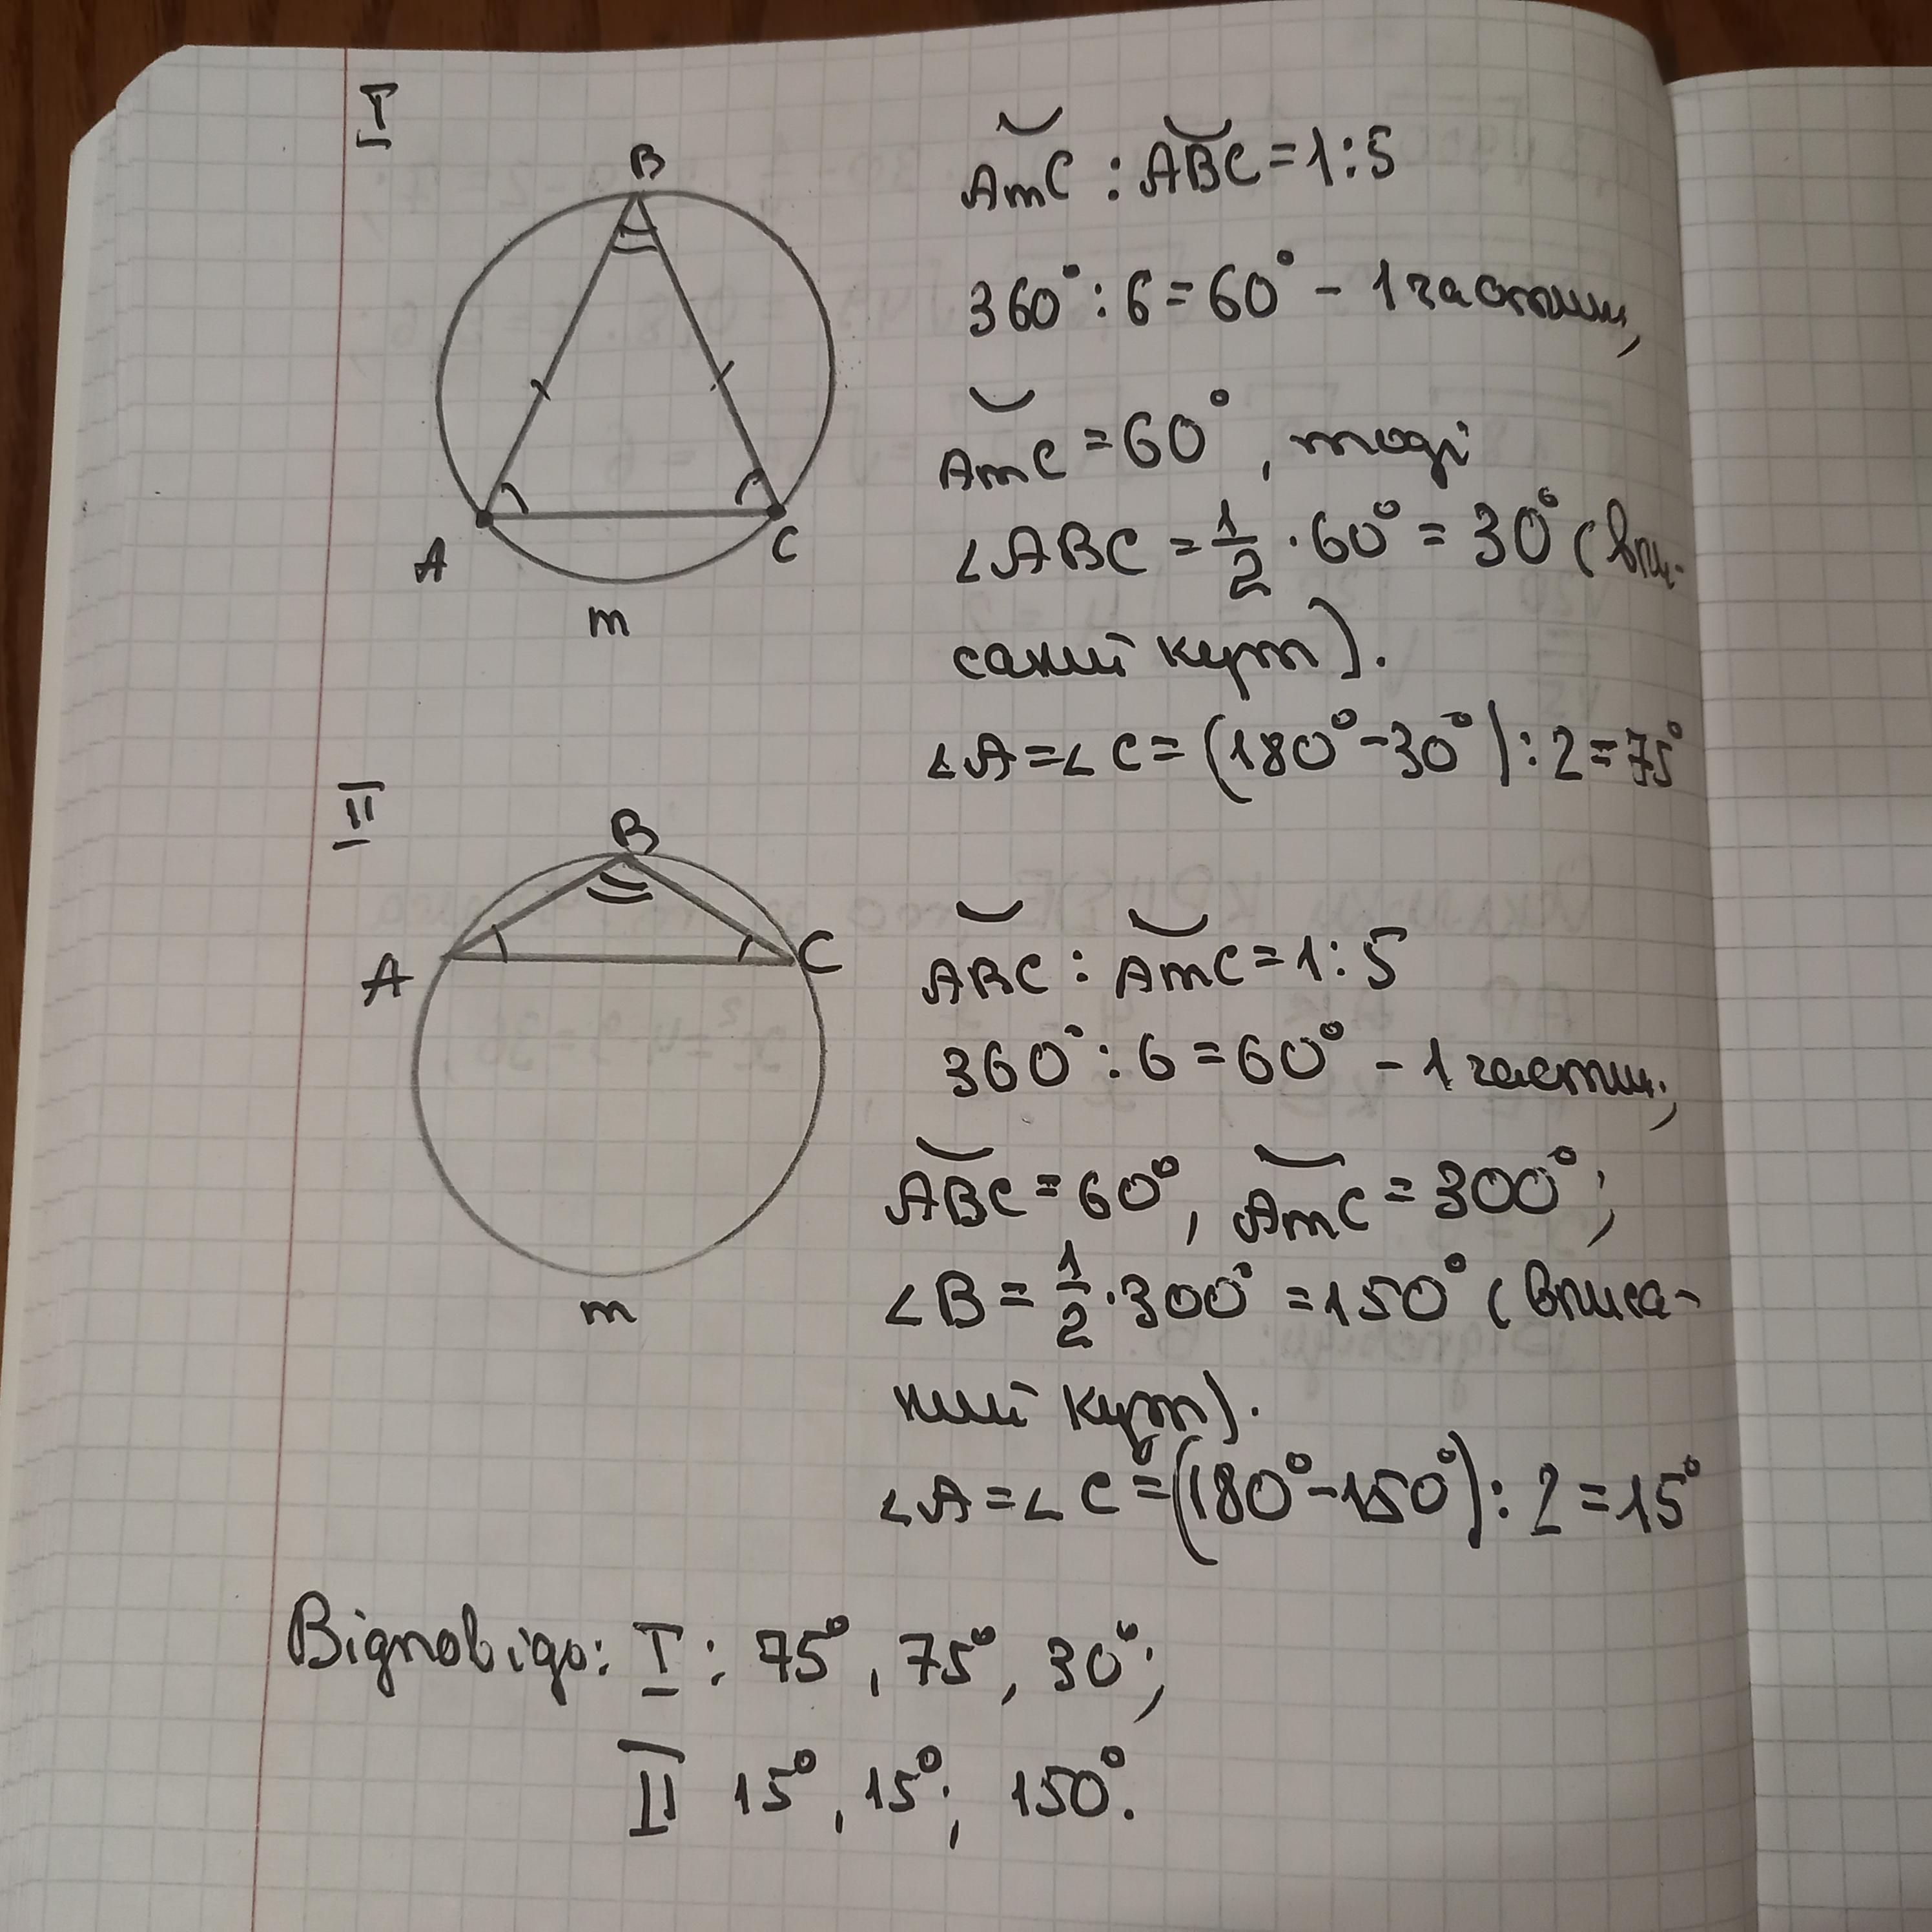 I
B
A
C
m
AmC : ABC = 1:5
360° : 6 = 60° - 1 частини,
AmC = 60°, тоді
∠ABC = 1/2 · 60° = 30° (впи-
саний кут).
∠A = ∠C = (180° - 30°) : 2 = 75°
II
B
A
C
m
ABC : AmC = 1:5
360° : 6 = 60° - 1 частин.,
ABC = 60°, AmC = 300°;
∠B = 1/2 · 300° = 150° (вписа-
ний кут).
∠A = ∠C = (180° - 150°) : 2 = 15°
Відповідь: I : 75°, 75°, 30°;
II 15°, 15°; 150°.